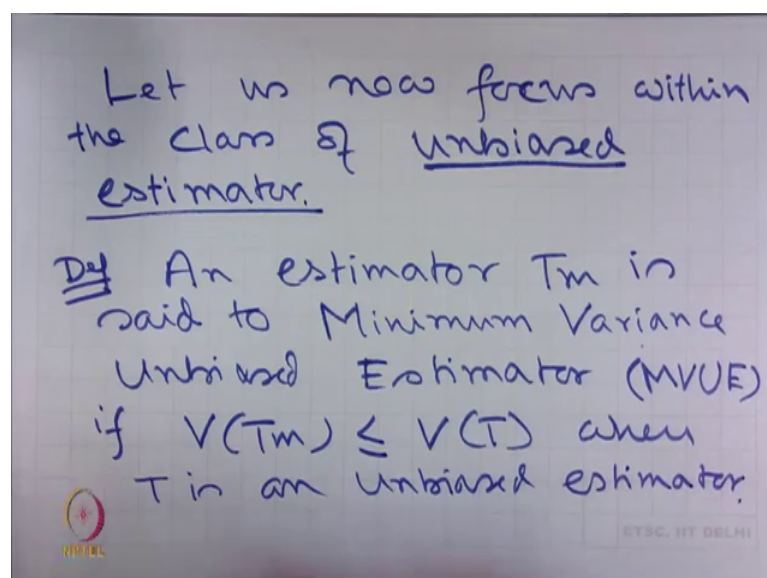 Let us now focus within
the class of unbiased
estimator.
Def An estimator Tm is
said to Minimum Variance
Unbiased Estimator (MVUE)
if V(Tm) ≤ V(T) when
T is an unbiased estimator.
NPTEL
ETSC, IIT DELHI